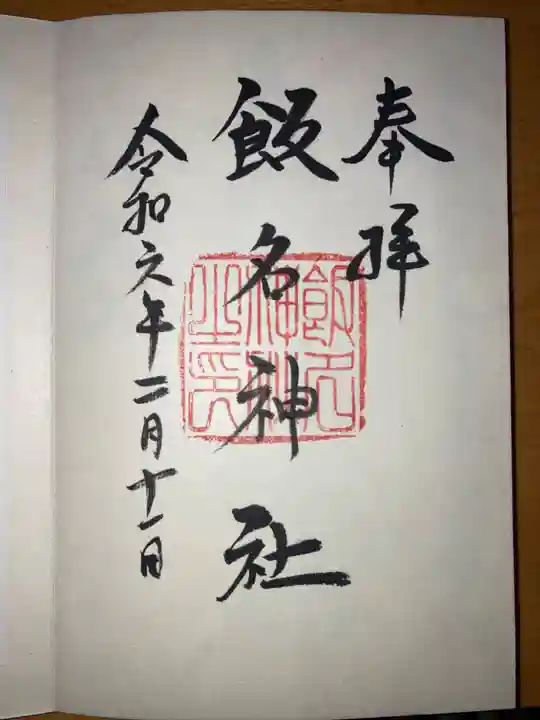 奉拝
飯名神社
飯名神社之印
令和六年二月十一日